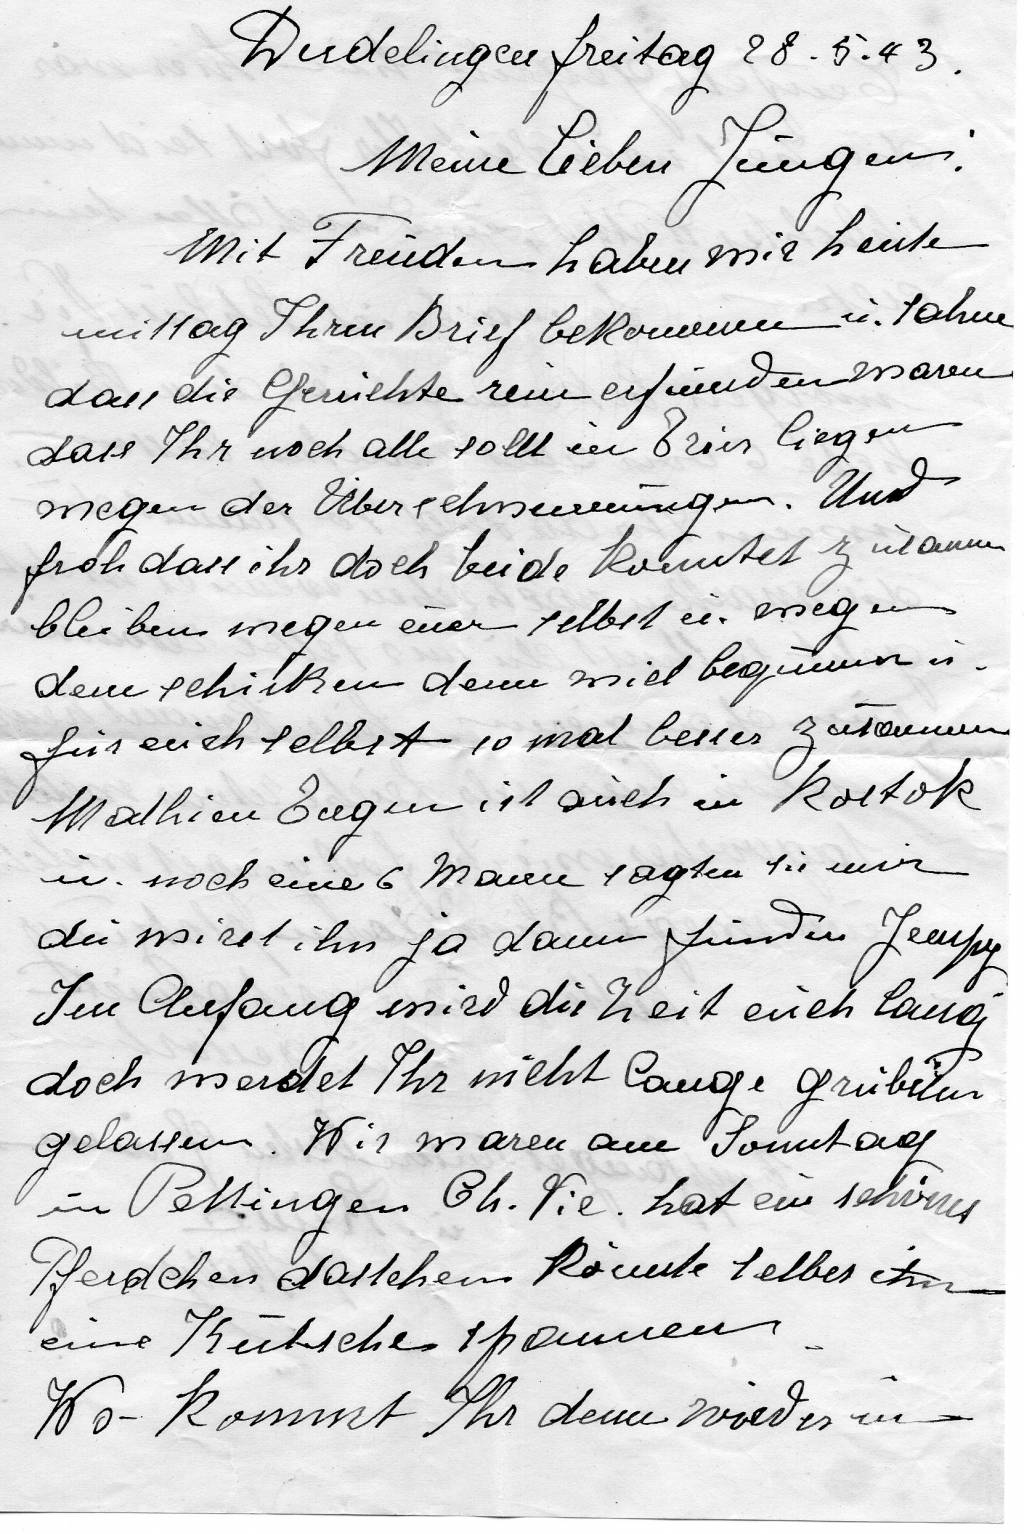 Dudelingen freitag 28.5.43.
Meine lieben Jungens!
Mit Freuden haben wir heute
mittag Ihren Brief bekommen u. sahen
dass die Gerüchte rein erfunden waren
dass Ihr noch alle sollt in Trier liegen
wegen der Überschwemmungen. Und
froh dass ihr doch beide konntet zusammen
bleiben wegen euer selbst u. wegen
dem schicken denn viel bequemer u.
für euch selbst so mal besser zusammen
Mathieu Eugen ist auch in Rostok
u. noch eine 6 Mann sagten sie mir
du wirst ihn ja dann finden Jempy
Im Anfang wird die Zeit euch lang
doch werdet Ihr nicht lange grübeln
gelassen. Wir waren am Sonntag
in Pettingen Ch. Vic. hat ein schönes
Pferdchen dastehen könnte selber
eine Kutsche spannen
Wo kommt Ihr denn wieder in